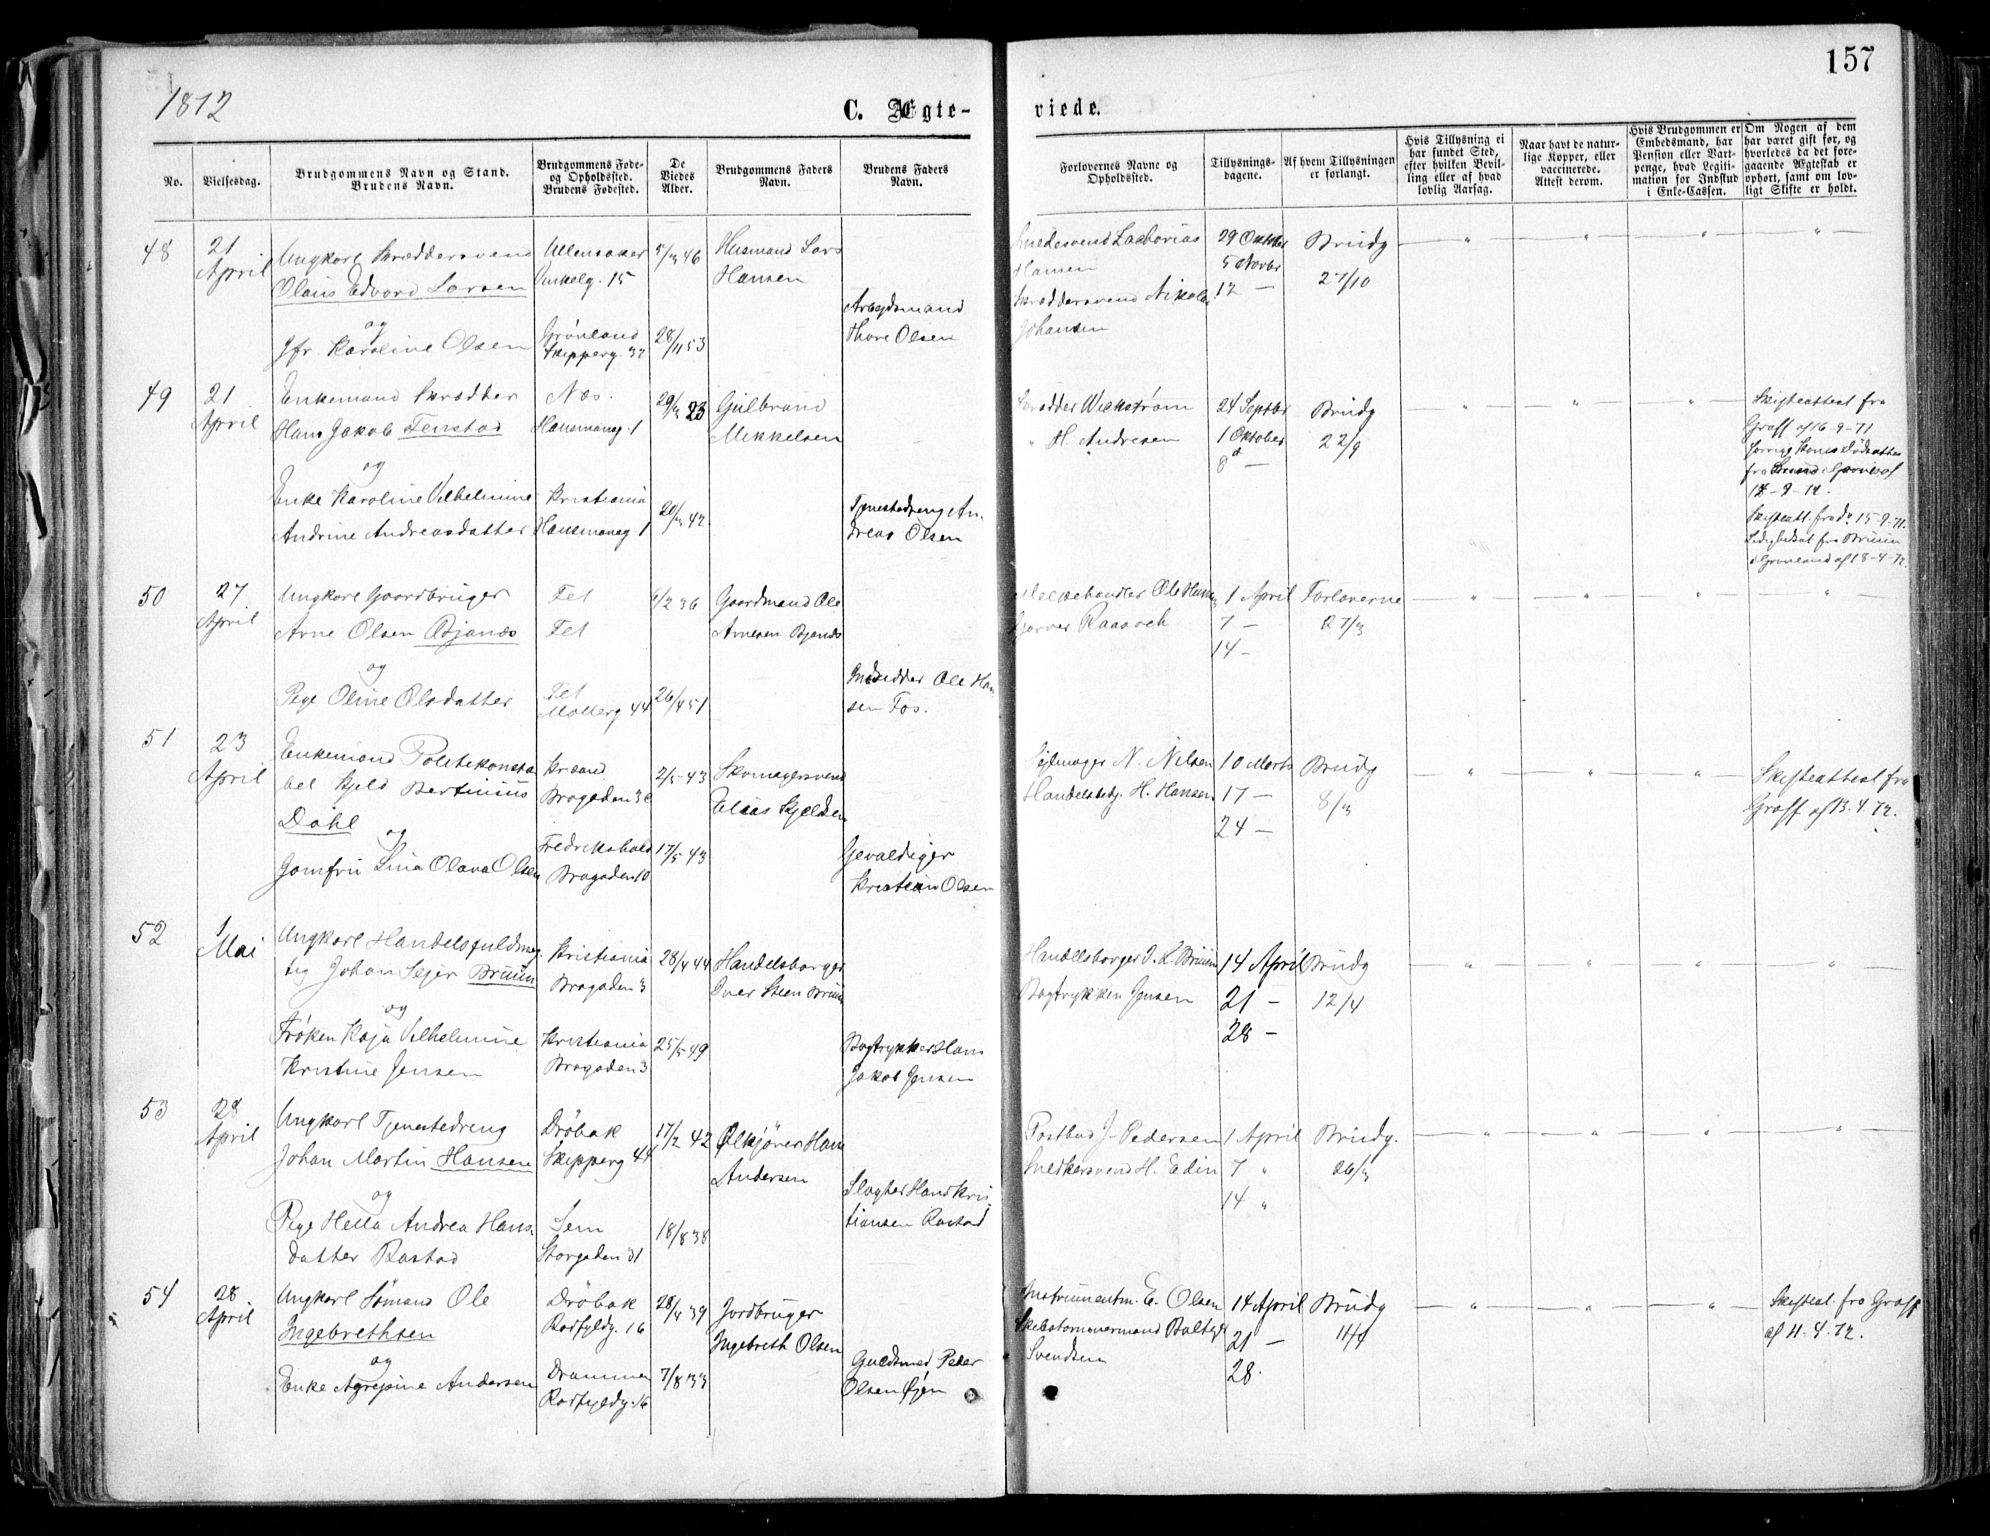 157
1872
C. Ægte-
viede.
No.
Vielsesdag.
Brudgommens Navn og Stand.
Brudens Navn.
Brudgommens Føde-
og Opholdssted.
Brudens Fødested.
De
Viedes
Alder.
Brudgommens Faders
Navn.
Brudens Faders
Navn.
Forlovernes Navne og
Opholdssted.
Tillysnings-
dagene.
Af hvem Tillysningen
er forlangt.
Hvis Tillysning ei
har fundet Sted,
efter hvilken Bevil-
ling eller af hvad
lovlig Aarsag.
Naar havt de natur-
lige Kopper, eller
vaccinerede.
Attest derom.
Hvis Brudgommen er
Embedsmand, har
Pension eller Vart-
penge, hvad Legiti-
mation for Indskud
i Enke-Cassen.
Om Nogen af dem
har været gift før, og
hvorledes da det fore-
gaaende Ægteskab er
ophørt, samt om lov-
ligt Skifte er holdt.
48
21
April
Ungkarl Skræddersvend
Olaus Edvard Larsen
og
Jfr. Karoline Olsen
Ullensaker
Vinkelg. 15
Grønland
Skipperg. 32
5/3 46
28/11 53
Husmand Lars
Hansen
Arbeidsmand
Thore Olsen
Smedesvend Zacharias
Hansen
Skræddersvend Nikolai
Johansen
29 Oktober
5 Novbr
12 —
Brudg
27/10
49
21
April
Enkemand Skrædder
Hans Jakob Tenstad
og
Enke Karoline Vilhelmine
Andrine Andreasdatter
Næs.
Hausmansg. 1
Kristiania
Hausmansg 1
23
42
Gulbrand
Mikkelsen
Tjenestedreng An-
dreas Olsen
Skrædder Wickstrøm
" H. Andresen
24 Septbr
1 Oktober
8 —
Brudg
22/9
Skifteattest fra
Graff af 16-9-71
forrige Kones Dødsattest
fra
Skifteatt. fra do 15-9-71.
Ledighedsat fra Bruun
i Grønland af 18-4-72.
50
27
April
Ungkarl Gaardbruger
Arne Olsen Bjanæs
og
Pige Oline Olsdatter
Fet
Fet
Fet
Møllerg 44
6/2 36
26/4 51
Gaardmand Ole
Arnesen Bjanæs
Indsidder Ole Han
sen Fos.
Melkehandler Ole Hansen
Garver Raasoch
1 April
7 —
14 —
Forloverne
27/3
51
23
April
Enkemand Politikonsta
bel Kjeld Bertinius
Dahl
og
Jomfru Lina Olava Olsen
Krsand
Brogaden 3
Fredrikshald
Brogaden 10
2/5 43
17/5 43
Skomagersvend
Elias Kjeldsen
Gevaldiger
Kristian Olsen
Seilmager N. Nilsen
Handelsbetj. H. Hansen
10 Marts
17 —
24 —
Brudg
8/3
Skifteattest fra
Graff af 13. 4. 72.
52
1
Mai
Ungkarl Handelsfuldmæg
tig Johan Sejer Bruun
og
Frøken Kaja Vilhelmine
Kristine Jensen
Kristiania
Brogaden 3
Kristiania
Brogaden 3
28/4 44
25/5 49
Handelsborger
Iver Steen Bruun
Bogtrykker Hans
Jakob Jensen
Handelsborger I. S. Bruun
Bogtrykker Jensen
14 April
21 —
28 —
Brudg
12/4
53
28
April
Ungkarl Tjenestedreng
Johan Martin Hansen
og
Pige Hella Andrea Hans
datter Rastad
Drøbak
Skipperg 44
Sem
Storgaden 31
17/2 42
18/8 38
Ølkjører Hans
Andersen
Slagter Hans Kris
tiansen Rastad
Postbud J. Pedersen
Snedkersvend H. Edin
1 April
7 "
14 "
Brudg.
26/3
54
28
April
Ungkarl Sømand Ole
Ingebrethsen
og
Enke Agrepine Andersen
Drøbak
Rødfyldg. 16
Drammen
Rødfyldg. 16
28/4 39
7/8 33
Jordbruger
Ingebreth Olsen
Guldsmed Peder
Olsen Øjen
Instrumentm. E. Olsen
Skibstømmermand
Svendsen
14 April
21 —
28.
Brudg
11/4
Skifteat. fra Graff
af 11. 4. 72.